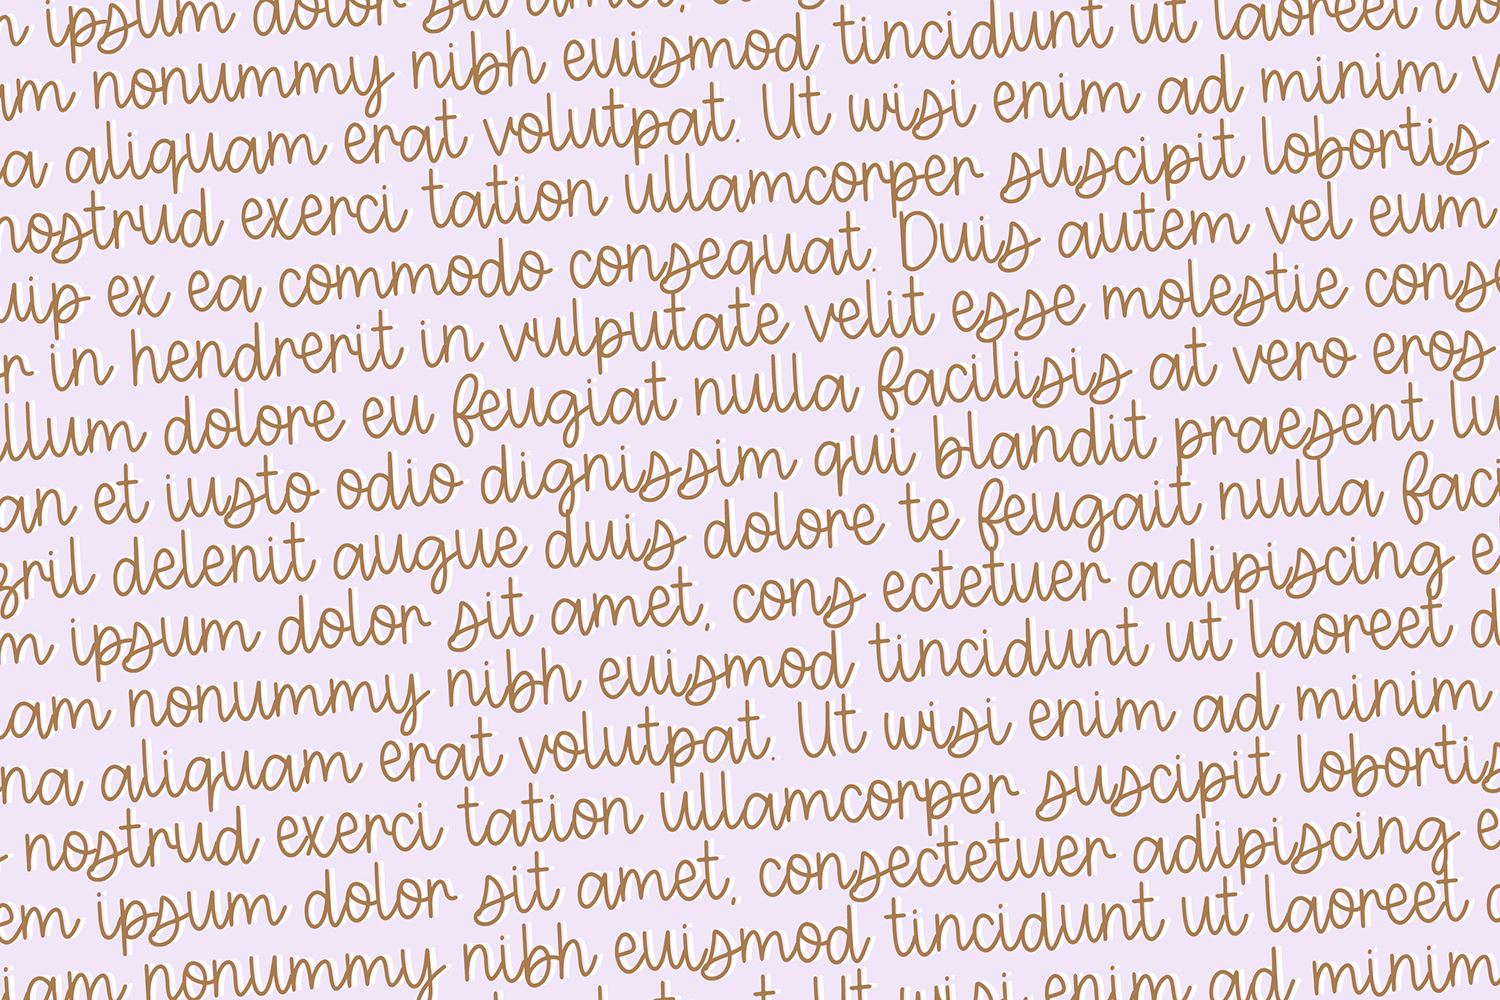 ipsum dolor sit amet,
am nonummy nibh euismod tincidunt ut laoreet do
a aliquam erat volutpat. Ut wisi enim ad minim v
nostrud exerci tation ullamcorper suscipit lobortis
uip ex ea commodo consequat. Duis autem vel eum
r in hendrerit in vulputate velit esse molestie conse
llum dolore eu feugiat nulla facilisis at vero eros
an et iusto odio dignissim qui blandit praesent lu
zril delenit augue duis dolore te feugait nulla faci
m ipsum dolor sit amet, cons ectetuer adipiscing e
am nonummy nibh euismod tincidunt ut laoreet d
na aliquam erat volutpat. Ut wisi enim ad minim
nostrud exerci tation ullamcorper suscipit lobortis
em ipsum dolor sit amet, consectetuer adipiscing e
iam nonummy nibh euismod tincidunt ut laoreet d
Ut wisi enim ad minim